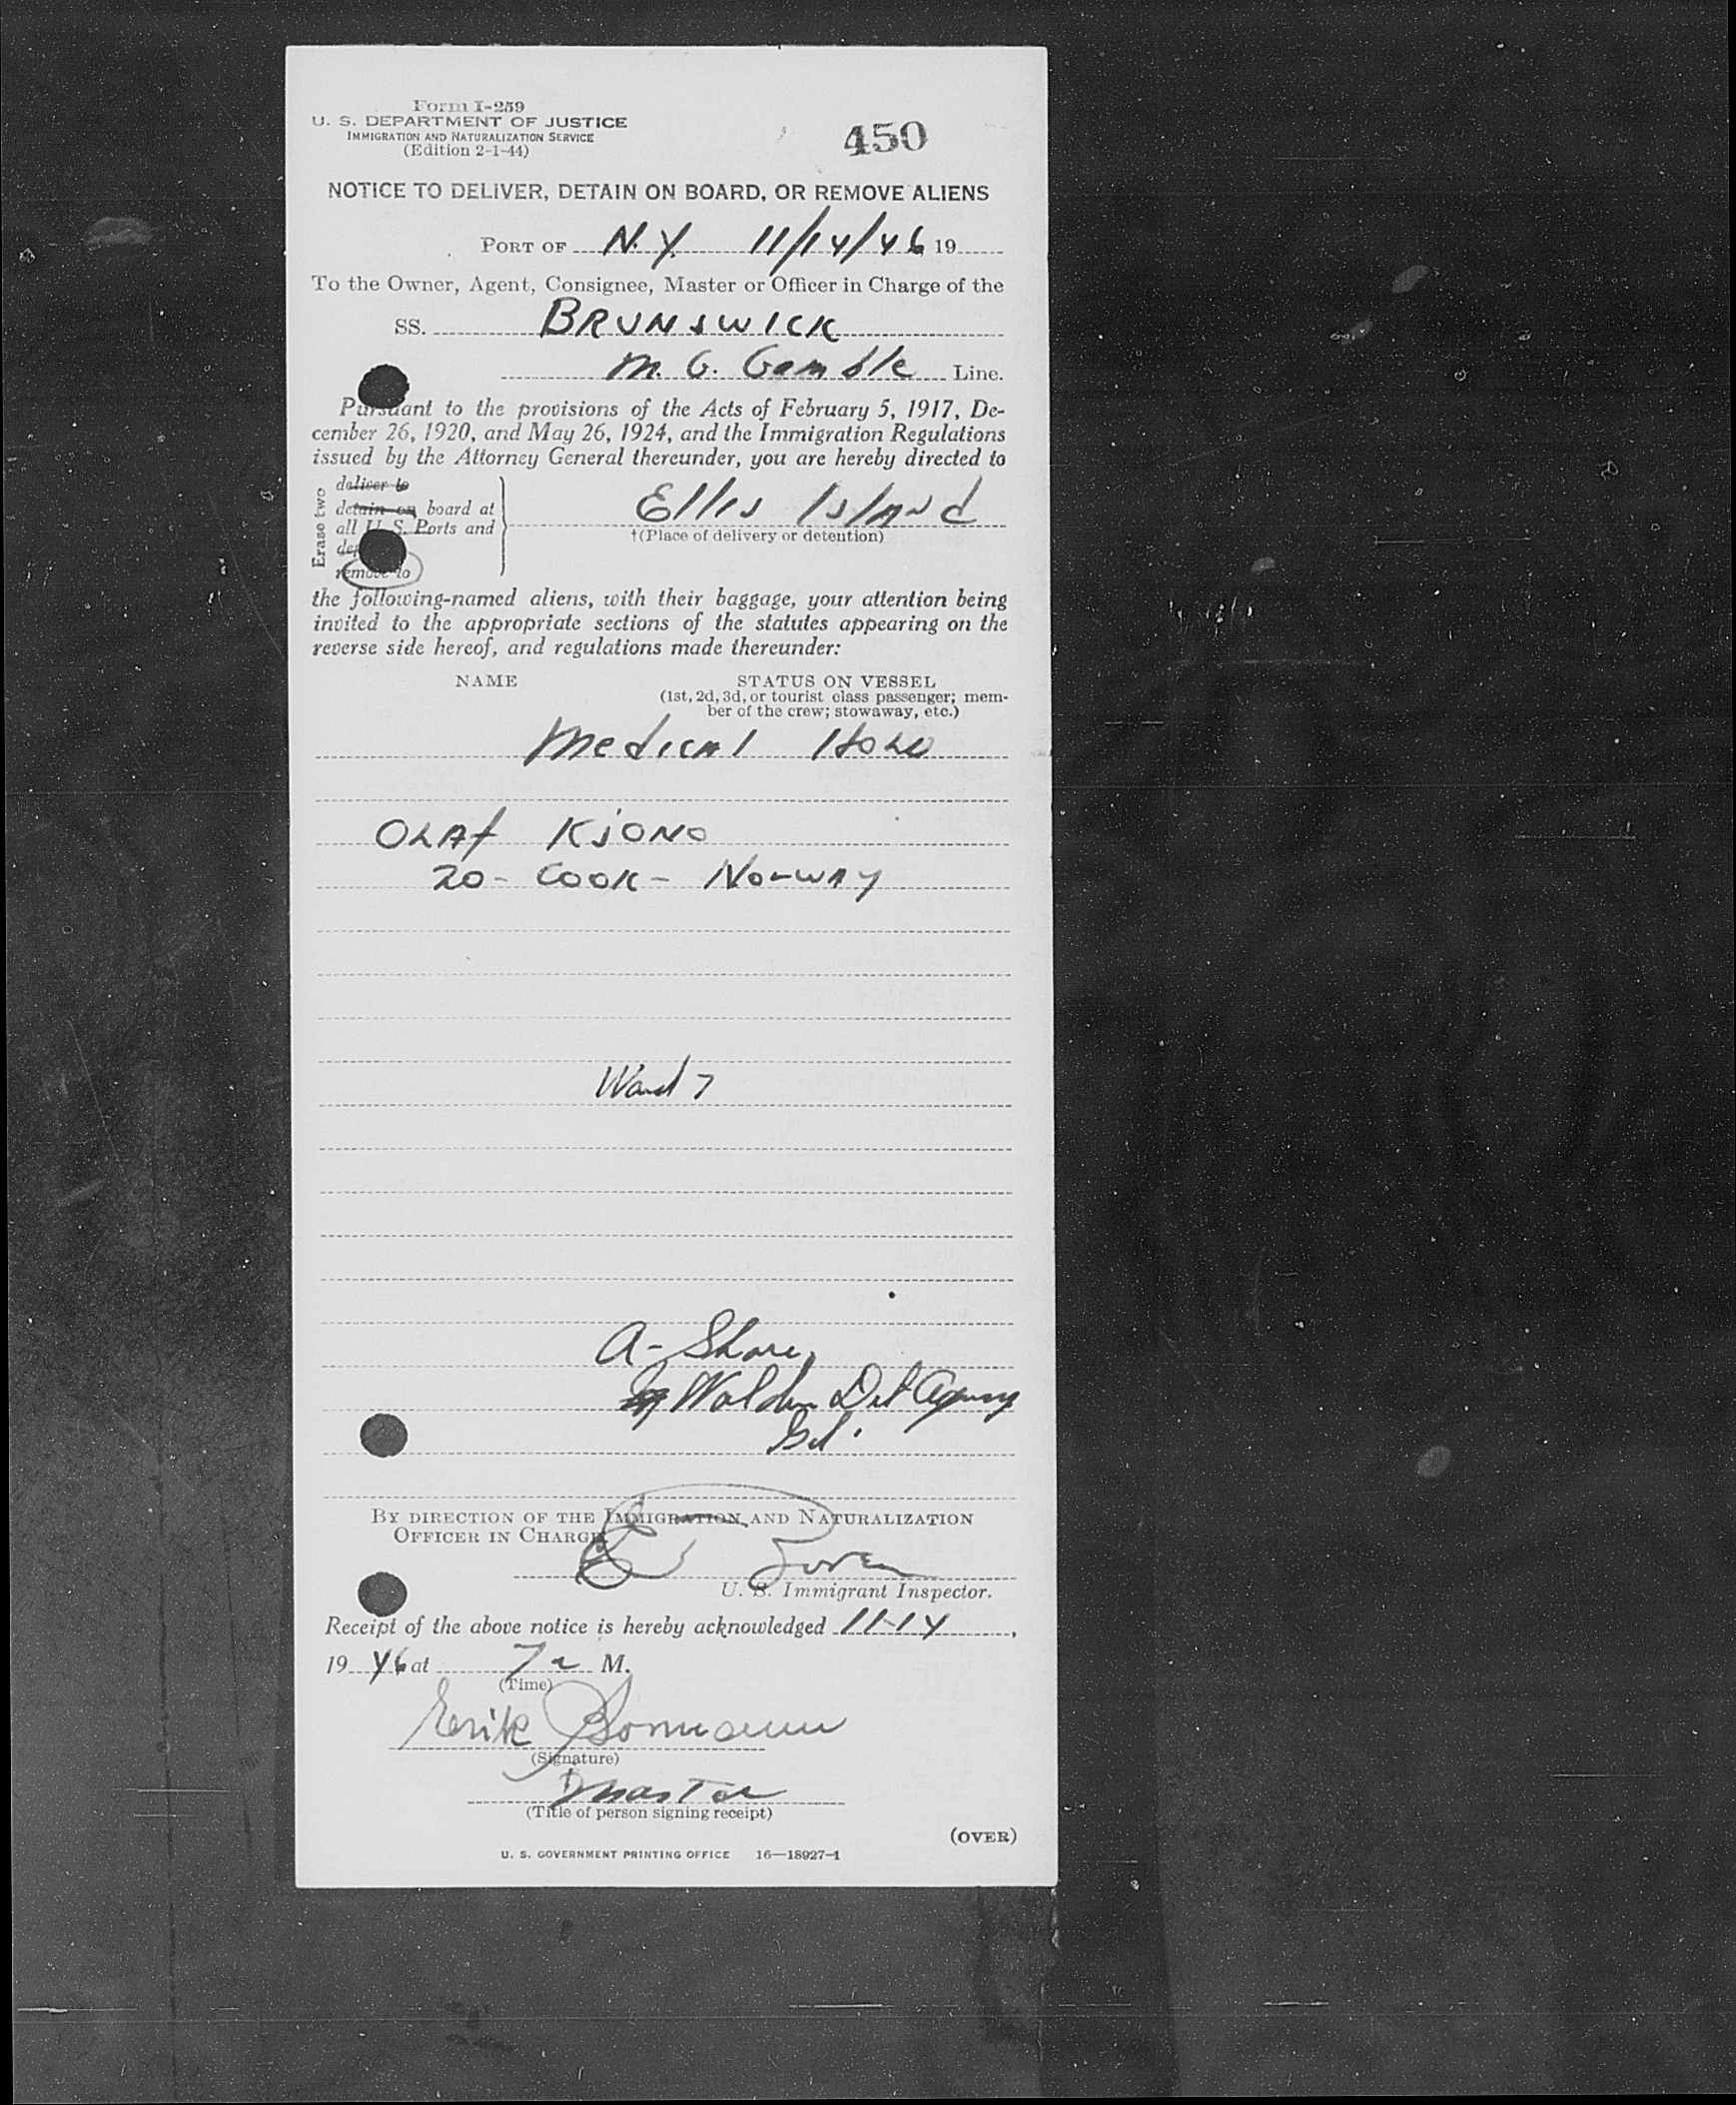 Form I-259
U. S. DEPARTMENT OF JUSTICE
IMMIGRATION AND NATURALIZATION SERVICE
(Edition 2-1-44)
450
NOTICE TO DELIVER, DETAIN ON BOARD, OR REMOVE ALIENS
PORT OF N.Y. 11/14/46 19
To the Owner, Agent, Consignee, Master or Officer in Charge of the
SS. BRUNSWICK
M. G. Gamble Line.
Pursuant to the provisions of the Acts of February 5, 1917, De-
cember 26, 1920, and May 26, 1924, and the Immigration Regulations
issued by the Attorney General thereunder, you are hereby directed to
Erase two
deliver to
detain on board at
all U. S. Ports and
remove to
Ellis Island
†(Place of delivery or detention)
the following-named aliens, with their baggage, your attention being
invited to the appropriate sections of the statutes appearing on the
reverse side hereof, and regulations made thereunder:
NAME STATUS ON VESSEL
(1st, 2d, 3d, or tourist class passenger; mem-
ber of the crew; stowaway, etc.)
Medical Hold
OLAf KjONO
20 - Cook - Norway
Ward 7
A - Shore
Walden Det Agency
BY DIRECTION OF THE IMMIGRATION AND NATURALIZATION
OFFICER IN CHARGE
U. S. Immigrant Inspector.
Receipt of the above notice is hereby acknowledged 11-14,
19 46 at 7 a M.
(Time)
Erik
(Signature)
Master
(Title of person signing receipt)
(OVER)
U. S. GOVERNMENT PRINTING OFFICE 16—18927-1